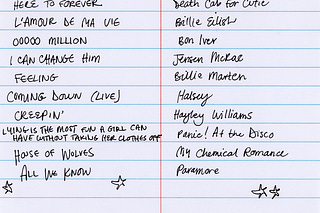 HERE TO FOREVER Death Cab for Cutie
L'AMOUR DE MA VIE Billie Eilish
00000 MILLION Bon Iver
I CAN CHANGE HIM Jensen McRae
FEELING Billie Marten
COMING DOWN (LIVE) Halsey
CREEPIN' Hayley Williams
LYING IS THE MOST FUN A GIRL CAN
HAVE WITHOUT TAKING HER CLOTHES OFF Panic! At the Disco
HOUSE OF WOLVES My Chemical Romance
ALL WE KNOW Paramore